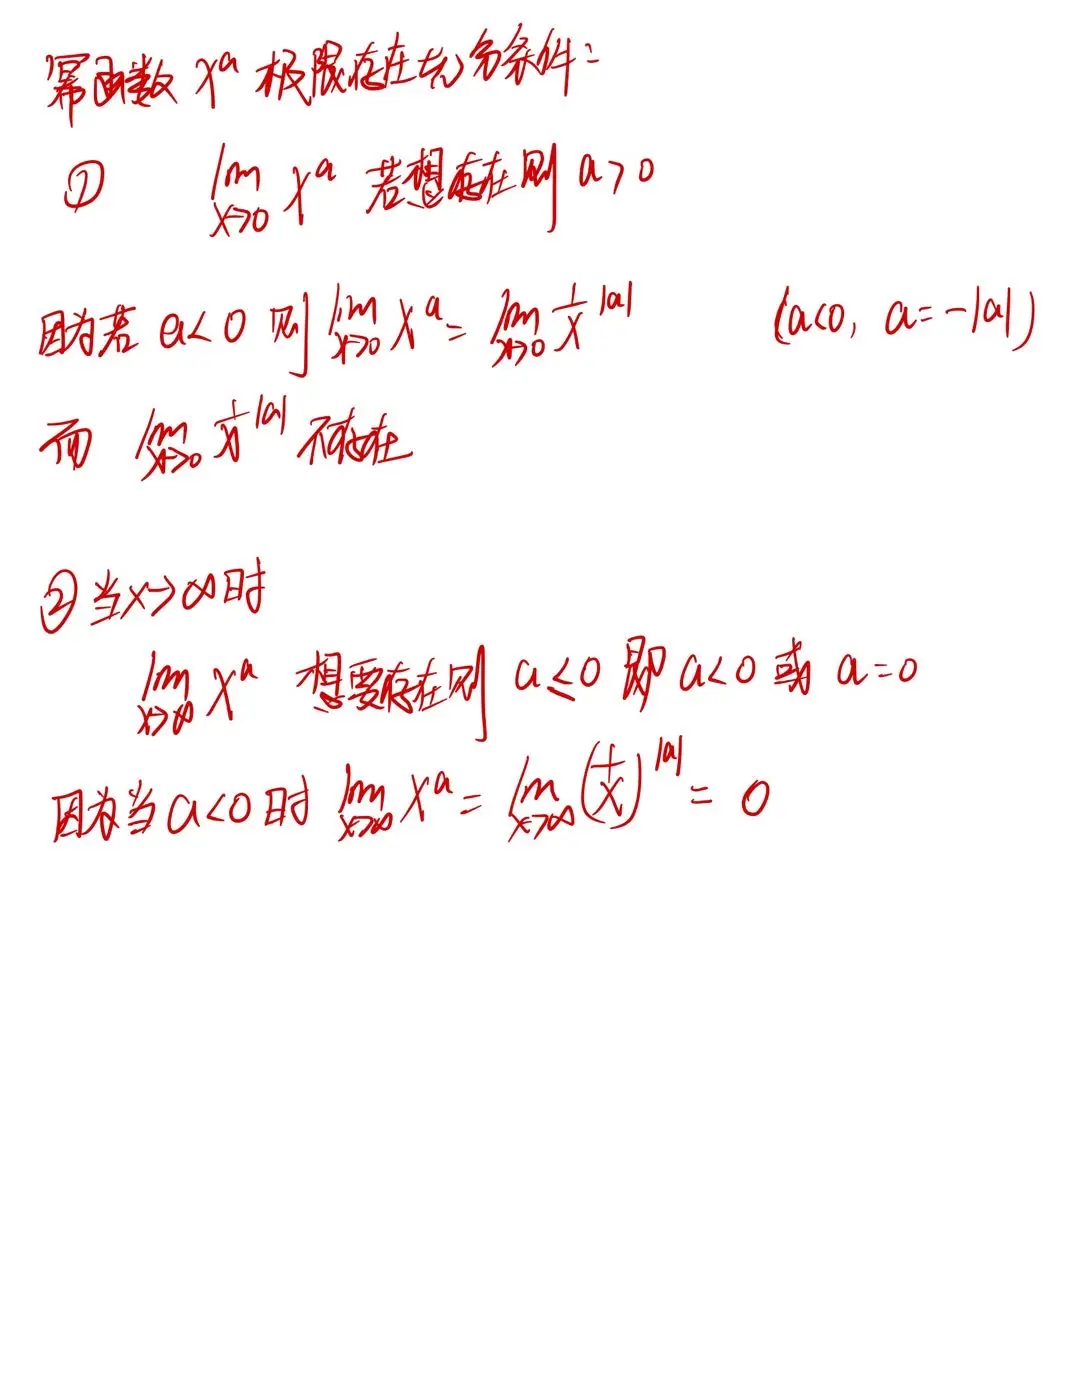 幂函数 x^a 极限存在充分条件:
① lim_{x→0} x^a 若想存在则 a>0
因为若 a<0 则 lim_{x→0} x^a = lim_{x→0} 1/x^{|a|} (a<0, a=-|a|)
而 lim_{x→0} 1/x^{|a|} 不存在
② 当x→∞时
lim_{x→∞} x^a 想要存在则 a≤0 即 a<0 或 a=0
因为当 a<0 时 lim_{x→∞} x^a = lim_{x→∞} (1/x)^{|a|} = 0